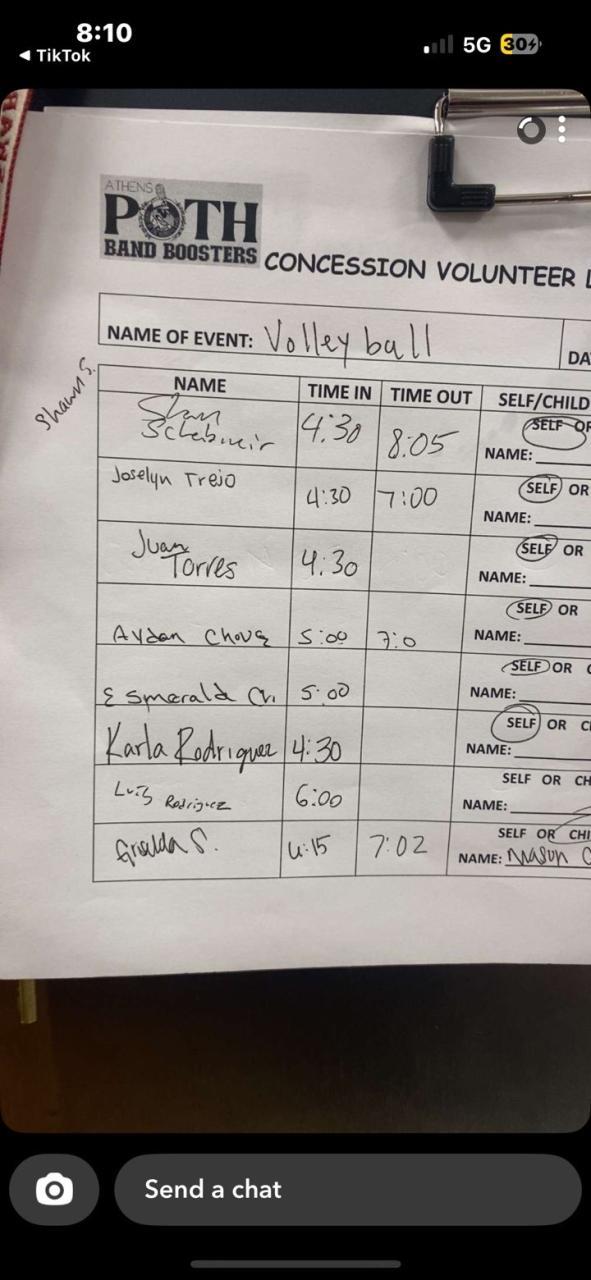 8:10
TikTok
5G 30
ATHENS
POTH
BAND BOOSTERS
CONCESSION VOLUNTEER
NAME OF EVENT: Volleyball
DA
Shawn S.
NAME TIME IN TIME OUT SELF/CHILD
Shawn 4:30 8:05 SELF OR
NAME:
Joselyn Trejo 4:30 7:00 SELF OR
NAME:
Juan Torres 4:30 SELF OR
NAME:
Aydan 5:00 7:0 SELF OR
NAME:
Esmerald 5:00 SELF OR
NAME:
Karla Rodriguez 4:30 SELF OR
NAME:
Luis Rodriguez 6:00 SELF OR CH
NAME:
S. 4:15 7:02 SELF OR CHI
NAME: Mason
Send a chat